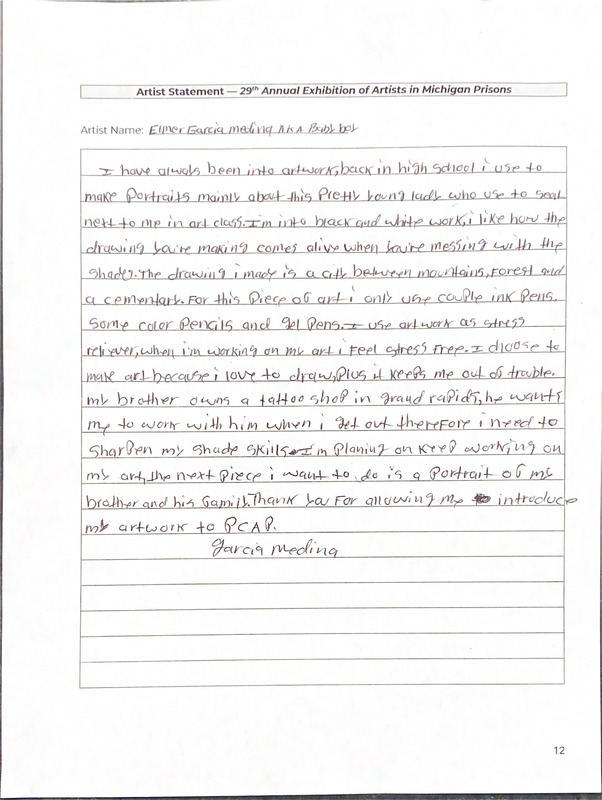 Artist Statement — 29th Annual Exhibition of Artists in Michigan Prisons
Artist Name: Elmer Garcia Medina A.K.A Baby boy
I have always been into artworks, back in high school i use to
make Portraits mainly about this Pretty young lady who use to seat
next to me in art class. I'm into black and white work, i like how the
drawing you're making comes alive when you're messing with the
shades. The drawing i made is a city between mountains, Forest and
a cementary. For this Piece of art i only use couple ink Pens.
Some color Pencils and gel Pens. I use artwork as stress
reliever, when i'm working on my art i Feel stress Free. I choose to
make art because i love to draw, Plus it keeps me out of trouble.
my brother owns a tattoo shop in grand rapids, he wants
me to work with him when i get out thereFore i need to
sharpen my shade skills I'm Planing on keep working on
my art, the next Piece i want to do is a Portrait of my
brother and his Family. Thank you For allowing me introduce
my artwork to PCAP.
Garcia Medina
12